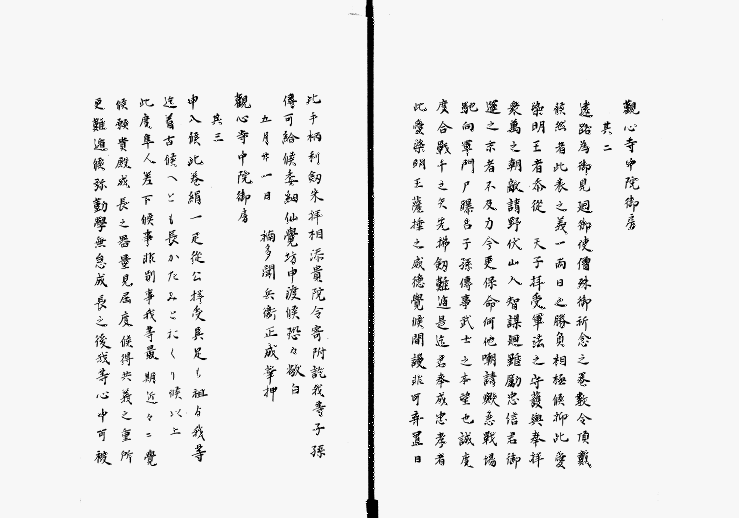 觀心寺中院御房
其二
遠路為御見廻御使僧殊御祈念之卷數令頂戴
候然者此表之義一兩日之勝負相極候抑此愛
染明王者忝從 天子拜受軍法之守護與奉拜
衆萬之朝敵請野伏山入智謀廻雖勵忠信君御
運之京者不及力今更保命何他嘲請歟急戰場
馳向軍門尸曝名子孫傳事武士之本望也誠度
度合戰千之矢先拂劔難遁是迄君奉成忠孝者
此愛染明王薩埵之威德覺候間謾非可弃置日
比手柄利劔朱祥相添貴院令寄附訖我等子孫
傳可給候委細仙覺坊申渡候恐々敬白
五月廿一日 楠多聞兵衞正成華押
觀心寺中院御房
其三
申入候此卷絹一疋從公拜受具足も祖与我等
迄着古候へとも長かたみとおくり候以上
此度隼人差下候事非別事我等最期近々ニ覺
候願貴殿成長之器量見届度候得共義之重所
更難遁候弥勤學無怠成長之後我等心中可被